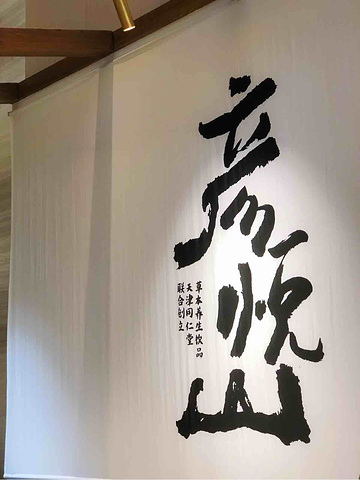 彦悦山
草本养生饮品
天津同仁堂
联合创立